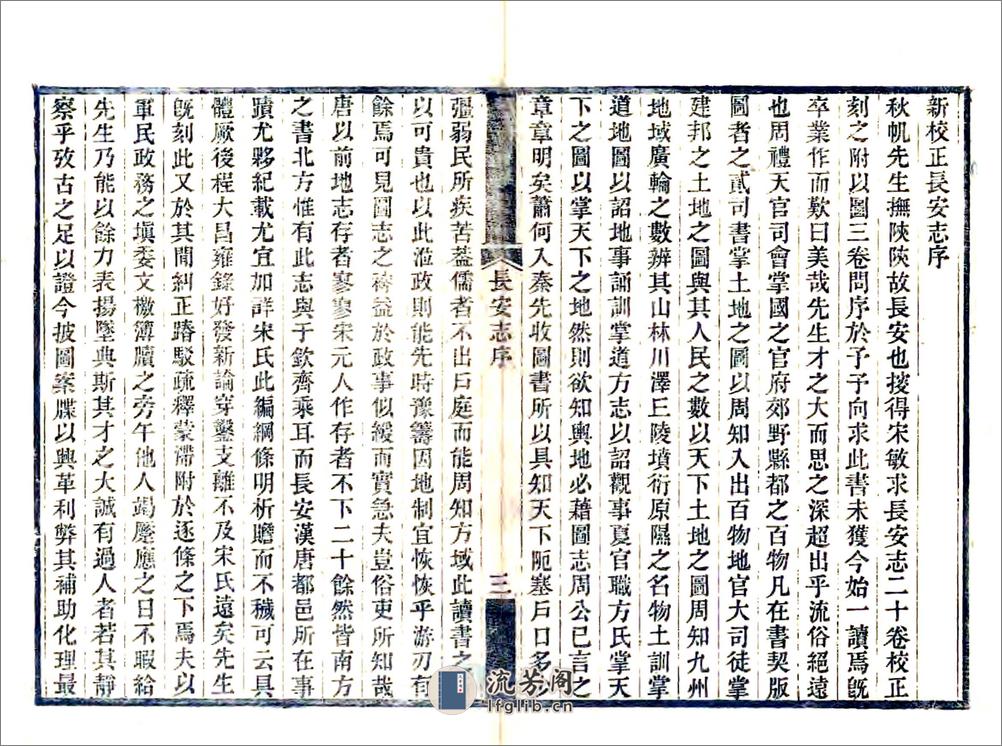 新校正長安志序
秋帆先生撫陝陝故長安也按得宋敏求長安志二十卷校正
刻之附以圖三卷問序於予予向求此書未獲今始一讀焉旣
卒業作而歎曰美哉先生才之大而思之深超出乎流俗絕遠
也周禮天官司會掌國之官府郊野縣都之百物凡在書契版
圖者之貳司書掌土地之圖以周知入出百物地官大司徒掌
建邦之土地之圖與其人民之數以天下土地之圖周知九州
地域廣輪之數辨其山林川澤丘陵墳衍原隰之名物土訓掌
道地圖以詔地事誦訓掌道方志以詔觀事夏官職方氏掌天
下之圖以掌天下之地然則欲知輿地必藉圖志周公已言之
章章明矣蕭何入秦先收圖書所以具知天下阨塞戶口多少
彊弱民所疾苦葢儒者不出戶庭而能周知方域此讀書之
以可貴也以此涖政則能先時豫籌因地制宜恢恢乎游刃有
餘焉可見圖志之裨益於政事似緩而實急夫豈俗吏所知哉
唐以前地志存者寥寥宋元人作存者不下二十餘然皆南方
之書北方惟有此志與于欽齊乘耳而長安漢唐都邑所在事
蹟尤夥紀載尤宜加詳宋氏此編綱條明析贍而不穢可云具
體厥後程大昌雍錄好發新論穿鑿支離不及宋氏遠矣先生
旣刻此又於其閒糾正踳駁疏釋蒙滯附於逐條之下焉夫以
軍民政務之塡委文檄簿牘之旁午他人竭蹷應之日不暇給
先生乃能以餘力表揚墜典斯其才之大誠有過人者若其靜
察乎攷古之足以證今披圖案牒以興革利弊其補助化理最
長安志序
三
流芳閣
lfglib.cn